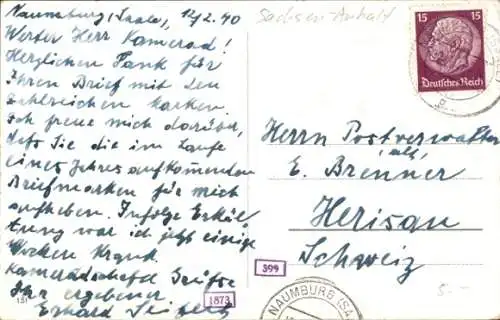 Naumburg (Saale), 12/2.40
Werter Herr Kamerad!
Herzlichen Dank für
Ihren Brief mit den
zahlreichen Marken.
Ich freue mich darüber,
daß Sie die im Laufe
eines Jahres aufkommenden
Briefmarken für mich
aufheben. Infolge Erkäl-
tung war ich jetzt einige
Wochen krank.
Kameradschaftl. Grüße
Ihr ergebener
Erhard
151
1873
399
Sachsen-Anhalt
15 15
Deutsches Reich
Herrn Postverwalter
E. Brenner
Herisau
Schweiz
5.-
NAUMBURG (SAA